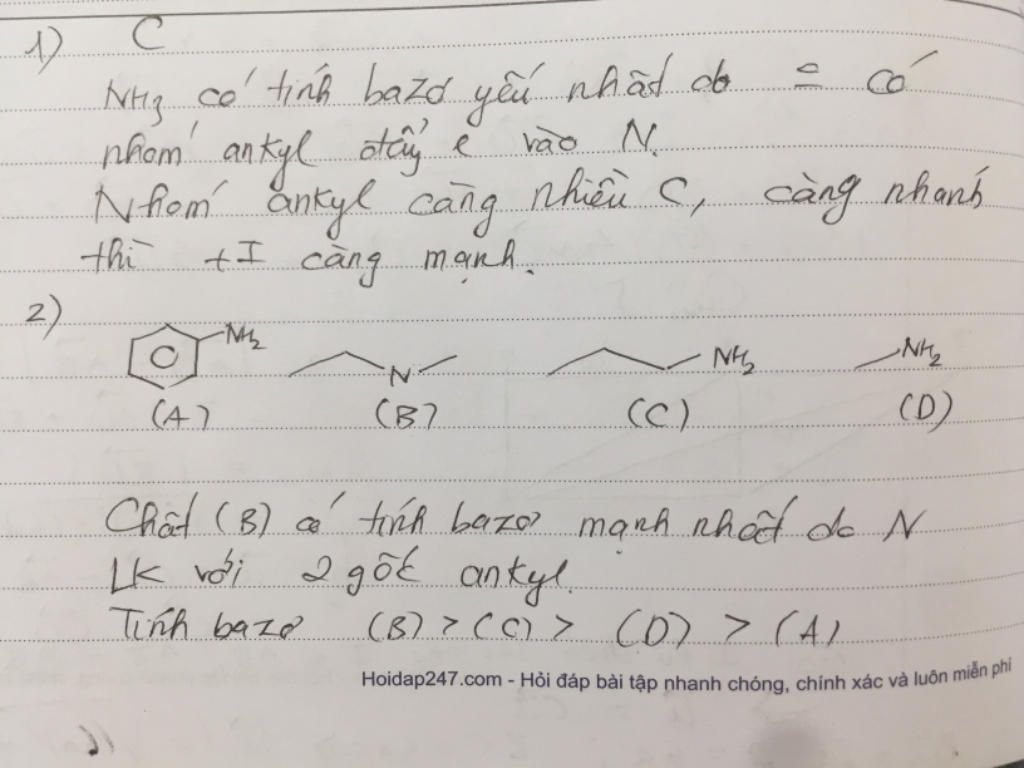 1) C
NH3 có tính bazơ yếu nhất do = có
nhóm ankyl đẩy e vào N.
Nhóm ankyl càng nhiều C, càng nhánh
thì +I càng mạnh.
2)
NH2 N NH2 NH2
(A) (B) (C) (D)
Chất (B) có tính bazơ mạnh nhất do N
LK với 2 gốc ankyl.
Tính bazơ (B) > (C) > (D) > (A)
Hoidap247.com - Hỏi đáp bài tập nhanh chóng, chính xác và luôn miễn phí